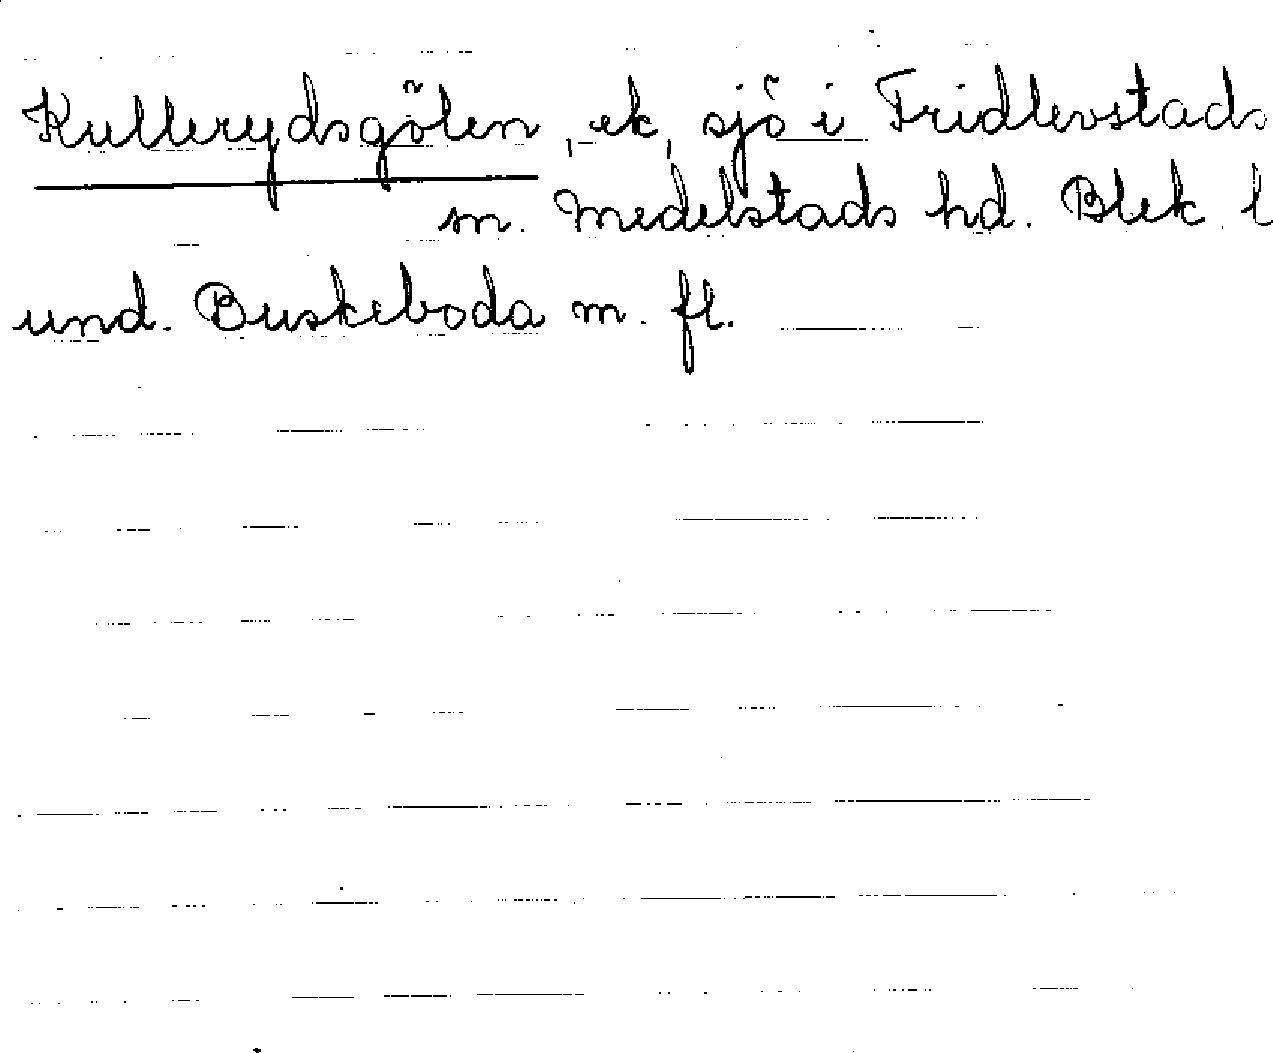 Kullerydsgölen, ek, sjö i Fridlevstads
sn. Medelstads hd. Blek. l
und. Buskeboda m. fl.